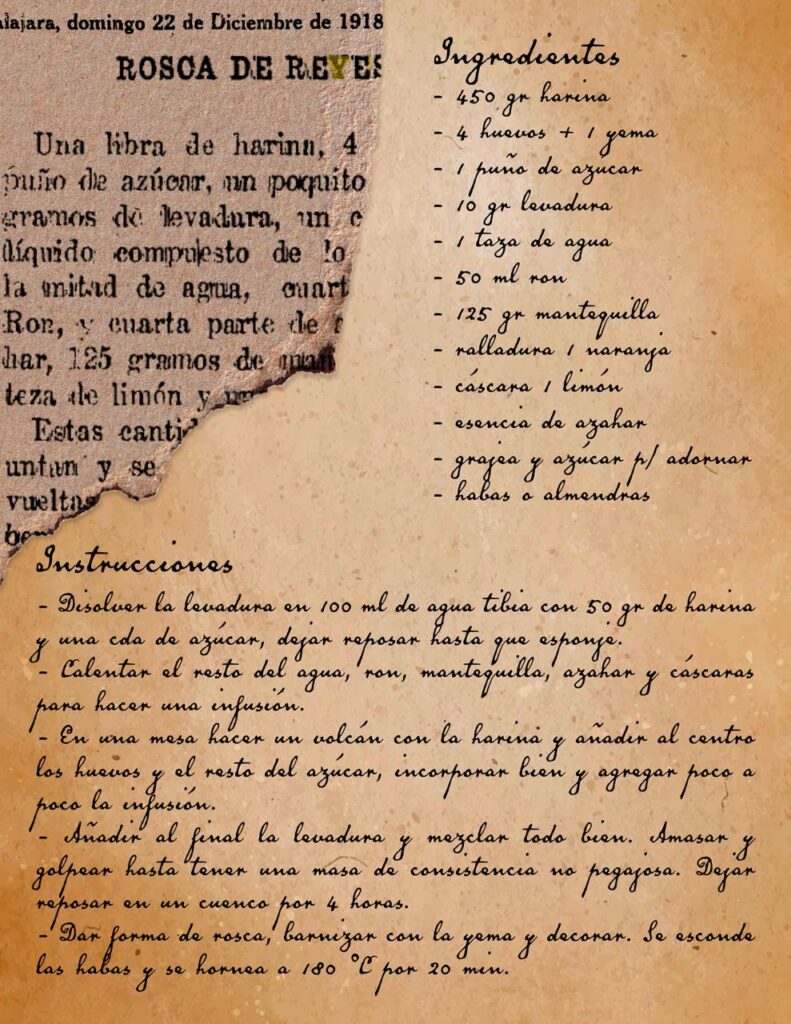 alajara, domingo 22 de Diciembre de 1918
ROSCA DE REYES
Una libra de harina, 4
puño de azúcar, un poquito
gramos de levadura, un
líquido compuesto de lo
la mitad de agua, cuart
Ron, y cuarta parte de
har, 125 gramos de
teza de limón y
Estas canti
untan y se
vueltas
Ingredientes
- 450 gr harina
- 4 huevos + 1 yema
- 1 puño de azucar
- 10 gr levadura
- 1 taza de agua
- 50 ml ron
- 125 gr mantequilla
- ralladura 1 naranja
- cáscara 1 limón
- esencia de azahar
- grajea y azúcar p/ adornar
- habas o almendras
Instrucciones
- Disolver la levadura en 100 ml de agua tibia con 50 gr de harina
y una cda de azúcar, dejar reposar hasta que esponje.
- Calentar el resto del agua, ron, mantequilla, azahar y cáscaras
para hacer una infusión.
- En una mesa hacer un volcán con la harina y añadir al centro
los huevos y el resto del azúcar, incorporar bien y agregar poco a
poco la infusión.
- Añadir al final la levadura y mezclar todo bien. Amasar y
golpear hasta tener una masa de consistencia no pegajosa. Dejar
reposar en un cuenco por 4 horas.
- Dar forma de rosca, barnizar con la yema y decorar. Se esconde
las habas y se hornea a 180 °C por 20 min.